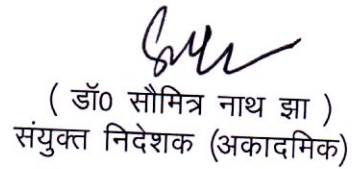 ( डॉ0 सौमित्र नाथ झा )
संयुक्त निदेशक (अकादमिक)